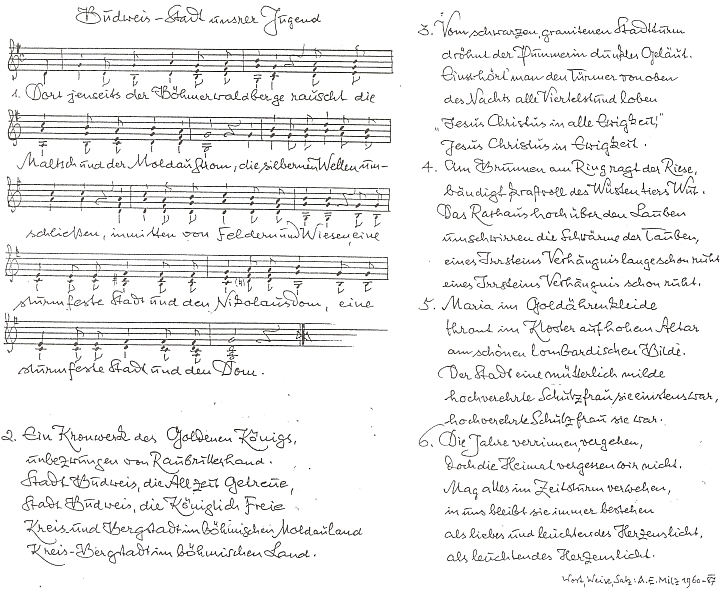 Budweis – Stadt unsrer Jugend
1. Dort jenseits der Böhmerwaldberge rauscht die
Maltsch und der Moldaustrom, die silbernen Wellen um-
schließen, inmitten von Feldern und Wiesen, eine
sturmfeste Stadt und den Nikolausdom, eine
sturmfeste Stadt und den Dom.
2. Ein Kronwerk des Goldenen Königs,
unbezwungen von Raubritterhand.
Stadt Budweis, die Allzeit Getreue,
Stadt Budweis, die Königlich Freie
Kreis und Bergstadt im böhmischen Moldauland
Kreis-Bergstadt im böhmischen Land.
3. Vom schwarzen, granitenen Stadtturm
dröhnt der Pummerin dunkles Geläut.
Einst hört man den Türmer von oben
des Nachts alle Viertelstund loben
„Jesus Christus in alle Ewigkeit,"
Jesus Christus in Ewigkeit.
4. Am Brunnen am Ring ragt der Riese,
bändigt kraftvoll des Wüstentiers Wut.
Das Rathaus hoch über den Lauben
umschwirren die Schwärme der Tauben,
eines Irrsteins Verhängnis lange schon ruht
eines Irrsteins Verhängnis schon ruht.
5. Maria im Goldährenkleide
thront im Kloster auf hohem Altar
am schönen lombardischen Bilde.
Der Stadt eine mütterlich milde
hochverehrte Schutzfrau sie einstens war,
hochverehrte Schutzfrau sie war.
6. Die Jahre verrinnen, vergehen,
doch die Heimat vergessen wir nicht.
Mag alles im Zeitsturm verwehen,
in uns bleibt sie immer bestehen
als liebes und leuchtendes Herzenslicht,
als leuchtendes Herzenslicht.
Wort, Weise, Satz: A. E. Milz 1960